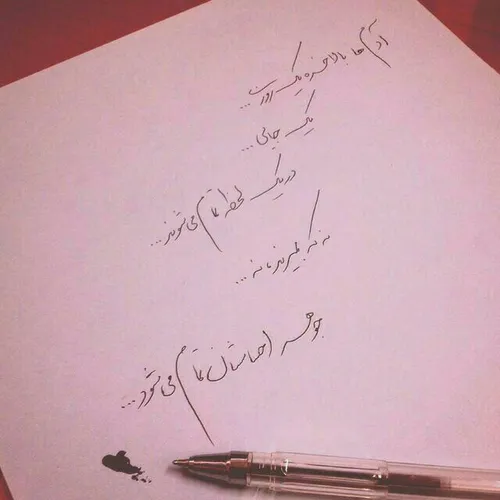 آدم ها بالاخره یک روز...
یک جایی...
در یک لحظه تمام می شوند...
نه که بمیرند، نه...
جوهر احساسشان تمام می شود...